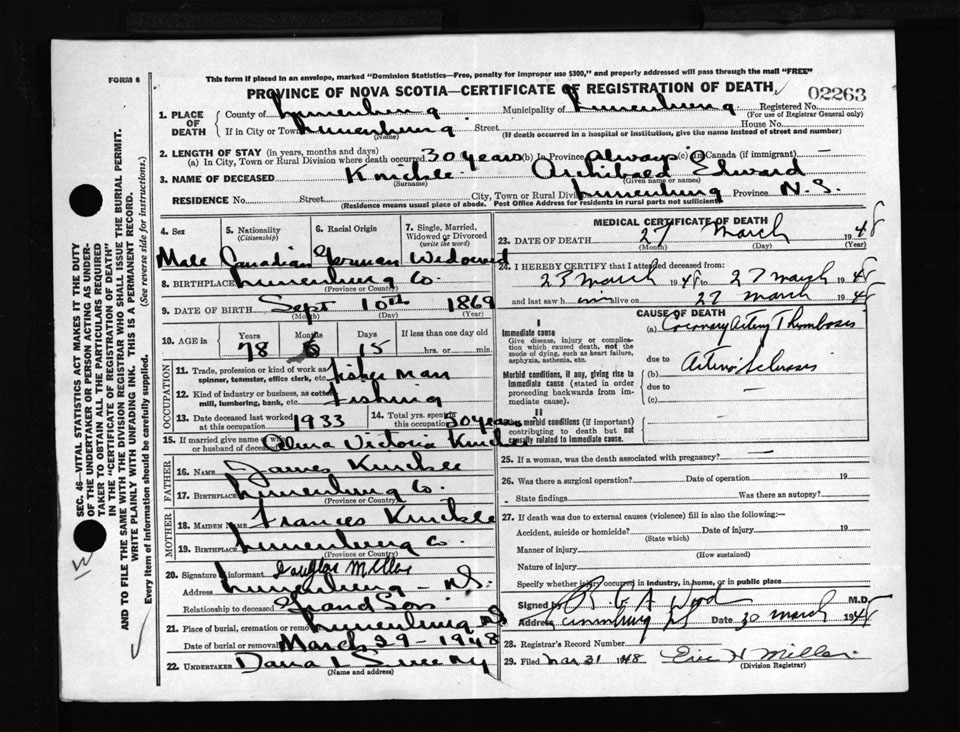 FORM 6
This form if placed in an envelope, marked "Dominion Statistics—Free, penalty for improper use $300," and properly addressed will pass through the mail "FREE"
PROVINCE OF NOVA SCOTIA—CERTIFICATE OF REGISTRATION OF DEATH
02263
1. PLACE OF DEATH
County of Lunenburg Municipality of Lunenburg Registered No.
(For use of Registrar General only)
If in City or Town Lunenburg Street House No.
(Name) (If death occurred in a hospital or institution, give the name instead of street and number)
2. LENGTH OF STAY (in years, months and days)
(a) In City, Town or Rural Division where death occurred 30 years (b) In Province Always (c) In Canada (if immigrant) —
3. NAME OF DECEASED Knickle Archibald Edward
(Surname) (Given name or names)
RESIDENCE No. Street City, Town or Rural Division Lunenburg Province N.S.
(Residence means usual place of abode. Post Office Address for residents in rural parts not sufficient)
4. Sex 5. Nationality (Citizenship) 6. Racial Origin 7. Single, Married, Widowed or Divorced (write the word)
Male Canadian German Widowed
8. BIRTHPLACE Lunenburg Co.
(Province or County)
9. DATE OF BIRTH Sept 10th 1869
(Month) (Day) (Year)
10. AGE in Years Months Days If less than one day old
78 6 15 hrs. or min.
OCCUPATION
11. Trade, profession or kind of work as spinner, teamster, office clerk, etc. fisherman
12. Kind of industry or business, as cotton mill, lumbering, bank, etc. Fishing
13. Date deceased last worked at this occupation 1933 14. Total yrs. spent in this occupation 50 years
15. If married give name of wife or husband of deceased Alma Victoria Knickle
FATHER
16. NAME James Knickle
17. BIRTHPLACE Lunenburg Co.
(Province or Country)
MOTHER
18. MAIDEN NAME Frances Knickle
19. BIRTHPLACE Lunenburg Co.
(Province or Country)
20. Signature of informant Douglas Miller
Address Lunenburg — N.S.
Relationship to deceased Grand Son
21. Place of burial, cremation or removal Lunenburg N.S.
Date of burial or removal March 29 - 1948
22. UNDERTAKER Dana L Sweeny
(Name and address)
MEDICAL CERTIFICATE OF DEATH
23. DATE OF DEATH 27 March 1948
(Month) (Day) (Year)
24. I HEREBY CERTIFY that I attended deceased from:
23 March 1948 to 27 March 1948
and last saw h im alive on 27 March 1948
CAUSE OF DEATH
I
Immediate cause
Give disease, injury or complication which caused death, not the mode of dying, such as heart failure, asphyxia, asthenia, etc.
(a) Coronary Artery Thrombosis
due to
Morbid conditions, if any, giving rise to immediate cause (stated in order proceeding backwards from immediate cause).
(b) Arterio Sclerosis
due to
(c)
II
Other morbid conditions (if important) contributing to death but not causally related to immediate cause.
25. If a woman, was the death associated with pregnancy? —
26. Was there a surgical operation? Date of operation 19
State findings Was there an autopsy?
27. If death was due to external causes (violence) fill in also the following:—
Accident, suicide or homicide? Date of injury 19
(State which)
Manner of injury
(How sustained)
Nature of injury
Specify whether injury occurred in industry, in home, or in public place
Signed by R G A Wood M.D.
Address Lunenburg NS Date 30 March 1948
28. Registrar's Record Number
29. Filed Mar 31 1948 Eric H Miller
(Division Registrar)
SEC. 46—VITAL STATISTICS ACT MAKES IT THE DUTY
OF THE UNDERTAKER OR PERSON ACTING AS UNDER-
TAKER TO OBTAIN ALL THE PARTICULARS REQUIRED
IN THE "CERTIFICATE OF REGISTRATION OF DEATH"
AND TO FILE THE SAME WITH THE DIVISION REGISTRAR WHO SHALL ISSUE THE BURIAL PERMIT.
WRITE PLAINLY WITH UNFADING INK. THIS IS A PERMANENT RECORD.
Every item of information should be carefully supplied. (See reverse side for instructions.)